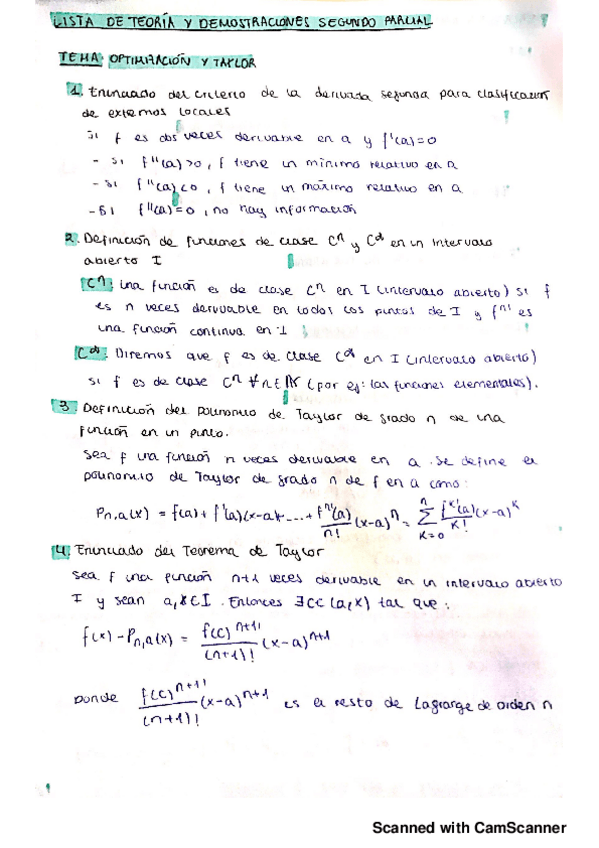 LISTA DE TEORÍA Y DEMOSTRACIONES SEGUNDO PARCIAL
TEMA: OPTIMIZACIÓN Y TAYLOR
1. Enunciado del criterio de la derivada segunda para clasificación
de extremos locales
Si f es dos veces derivable en a y f'(a)=0
- si f''(a)>0, f tiene un mínimo relativo en a
- si f''(a)<0, f tiene un máximo relativo en a
- Si f''(a)=0, no hay información
2. Definición de funciones de clase Cⁿ y C∞ en un intervalo
abierto I
Cⁿ: Una función es de clase Cⁿ en I (intervalo abierto) si f
es n veces derivable en todos los puntos de I y f⁽ⁿ⁾ es
una función continua en I
C∞: Diremos que f es de clase C∞ en I (intervalo abierto)
si f es de clase Cⁿ ∀n∈ℕ (por ej: las funciones elementales).
3. Definición del polinomio de Taylor de grado n de una
función en un punto.
Sea f una función n veces derivable en a. Se define el
polinomio de Taylor de grado n de f en a como:
Pn,a(x) = f(a)+f'(a)(x-a)+...+ fⁿ⁾(a)/n! (x-a)ⁿ = Σ k=0 n fᵏ⁾(a)/k! (x-a)ᵏ
4. Enunciado del Teorema de Taylor
Sea f una función n+1 veces derivable en un intervalo abierto
I y sean a,x∈I. Entonces ∃c∈(a,x) tal que:
f(x)-Pn,a(x) = f(c)ⁿ⁺¹⁾/(n+1)! (x-a)ⁿ⁺¹
Donde f(c)ⁿ⁺¹⁾/(n+1)! (x-a)ⁿ⁺¹ es el resto de Lagrange de orden n
Scanned with CamScanner